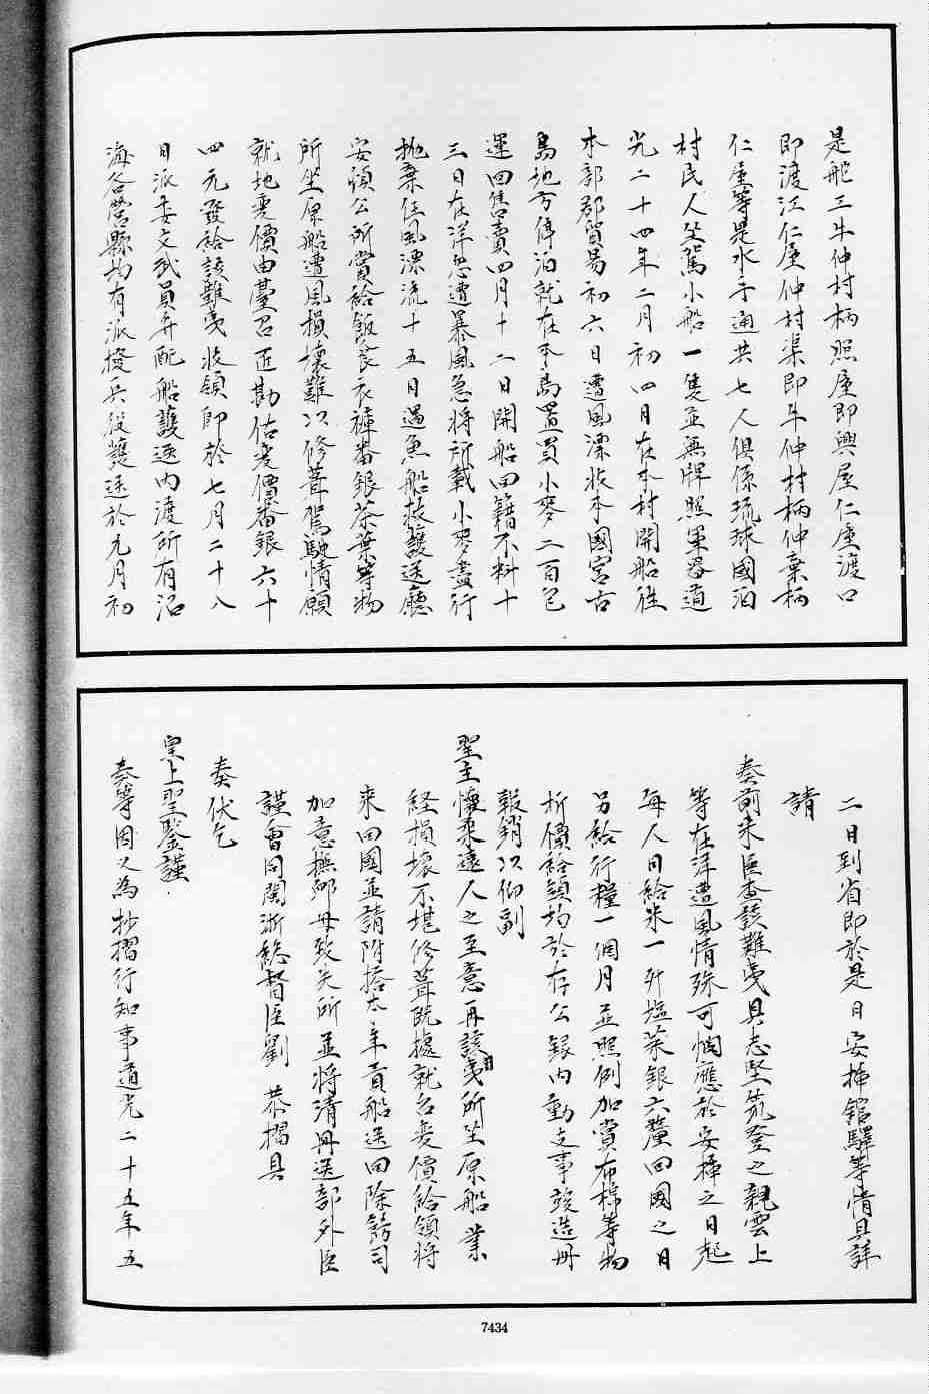 是舵工牛仲村柄照屋即與屋仁屋渡口
即渡江仁屋仲村渠即牛仲村柄仲棄柄
仁屋等是水手通共七人俱係琉球國泊
村民人坐駕小船一隻並無牌照軍器道
光二十四年二月初四月在本村開船往
本郭郡貿易初六日遭風漂收本國宮古
島地方停泊就在本島置買小麥二百包
運回售賣四月十二日開船回籍不料十
三日在洋忽遭暴風急將所載小麥盡行
抛棄任風漂流十五日遇魚船救護送廳
安頓公所賞給飯食衣褲番銀茶葉等物
所坐原船遭風損壞難以修葺駕駛情願
就地変價由臺召匠勘估変價番銀六十
四元發給該難夷收領即於七月二十八
日派委文武員弁配船護送內渡所有沿
海各營縣均有派撥兵役護送於九月初
二日到省即於是日安揷館驛等情具詳
請
奏前来臣查該難夷具志堅筑登之親雲上
等在洋遭風情殊可憫應於安揷之日起
每人日給米一升塩菜銀六釐回國之日
另給行糧一個月並照例加賞布棉等物
折價給領均於存公銀內動支事竣造册
報銷以仰副
聖主懷柔遠人之至意再該夷所坐原船業
経損壞不堪修葺既據就台変價給領將
来回國並請附搭本年貢船送回除飭司
加意撫卹毋致失所並將清册送部外臣
謹會同閩浙総督臣劉 恭摺具
奏伏乞
皇上聖鑒謹
奏等因又為抄摺行知事道光二十五年五
7434